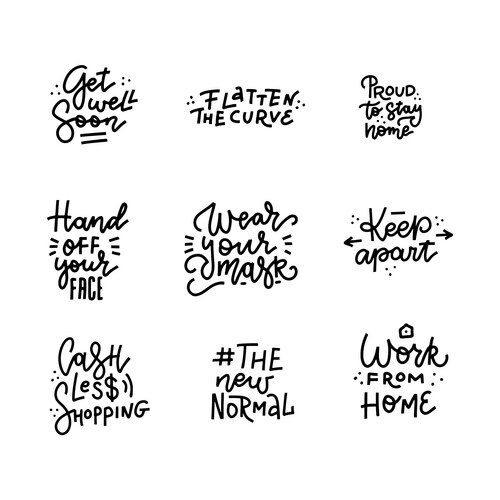 Get
well
Soon
FLaTTEN
THE CURVE
PROUD
to stay
home
Hand
OFF
your
FACE
Wear
your
mask
Keep
apart
CasH
Les$
SHOPPING
#THE
new
NORMAL
Work
FROM
HOME